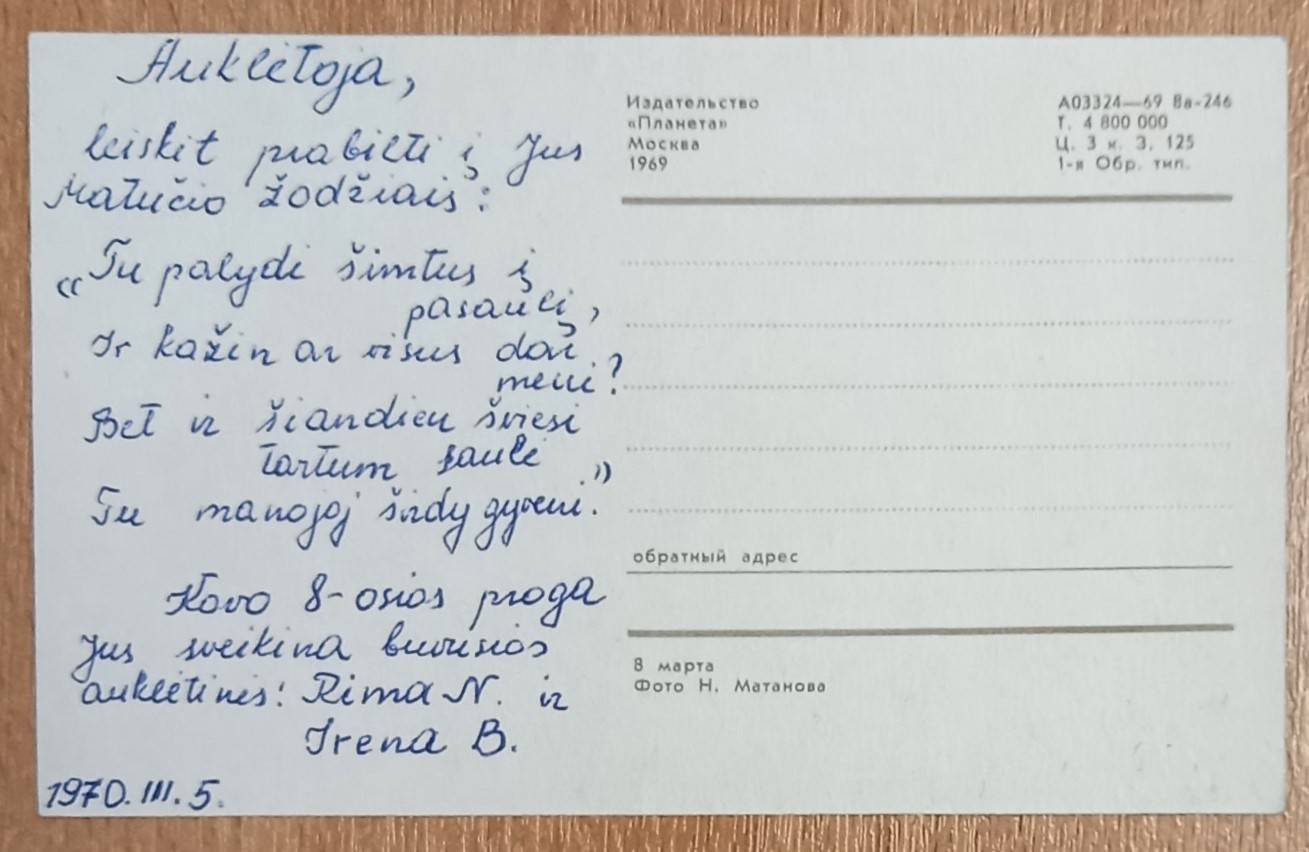 Auklėtoja,
leiskit prabilti į Jus
Matučio žodžiais:
„Tu palydi šimtus į
pasaulį,
Ir kažin ar visus dar
meni?
Bet ir šiandien šviesi
tartum saulė
Tu manojoj širdy gyveni.”
Kovo 8-osios proga
Jus sveikina buvusios
auklėtinės: Rima N. ir
Irena B.
1970.III.5.
Издательство
«Планета»
Москва
1969
А03324—69 Вв-246
Т. 4 800 000
Ц. 3 к. З. 125
1-я Обр. тип.
обратный адрес
8 марта
Фото Н. Матанова